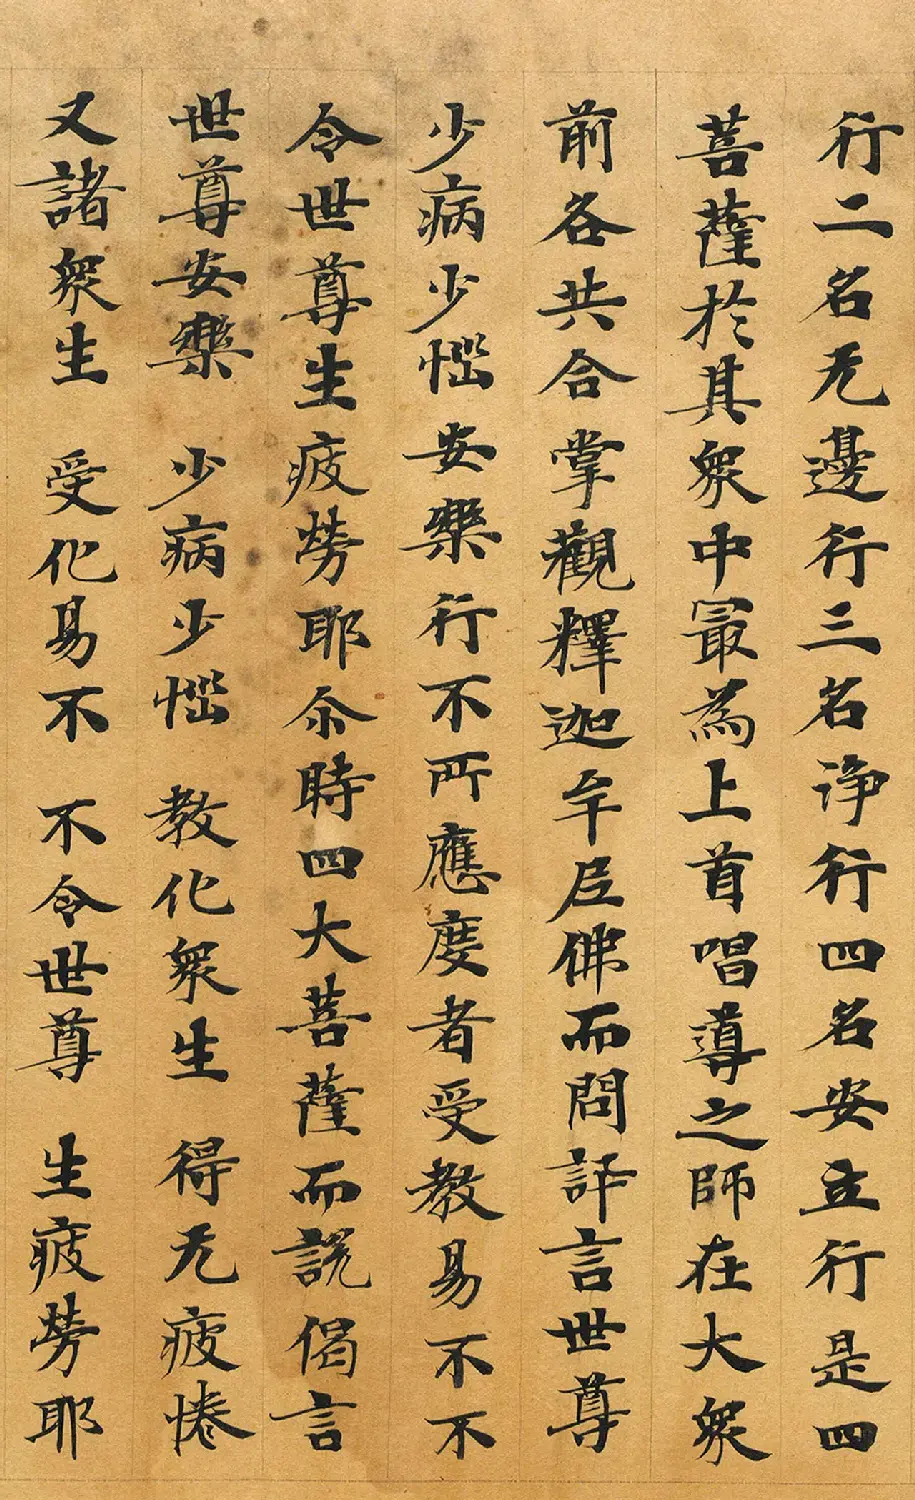 行二名无邊行三名淨行四名安立行是四
菩薩於其衆中冣為上首唱導之師在大衆
前各共合掌觀釋迦牟尼佛而問訊言世尊
少病少惱安樂行不所應度者受教易不不
令世尊生疲勞耶尒時四大菩薩而說偈言
世尊安樂 少病少惱 教化衆生 得无疲惓
又諸衆生 受化易不 不令世尊 生疲勞耶